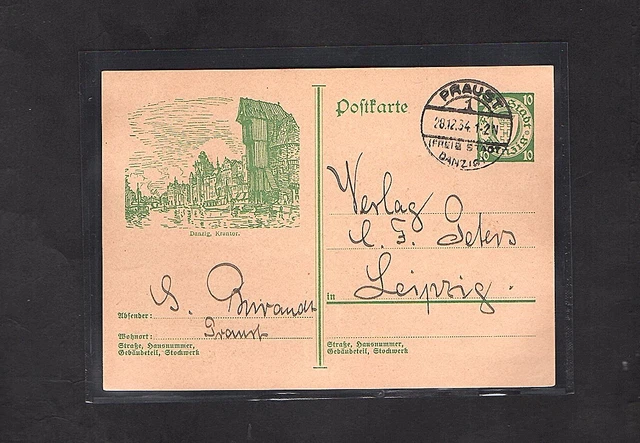 Danzig, Krantor.
Absender:
G.
Wohnort:
Praust
Straße, Hausnummer,
Gebäudeteil, Stockwerk
Postkarte
PRAUST
1
28.12.34.1-2N
(FREIE STADT
DANZIG)
10
10
10
Verlag
C. F. Peters
in Leipzig.
Straße, Hausnummer,
Gebäudeteil, Stockwerk